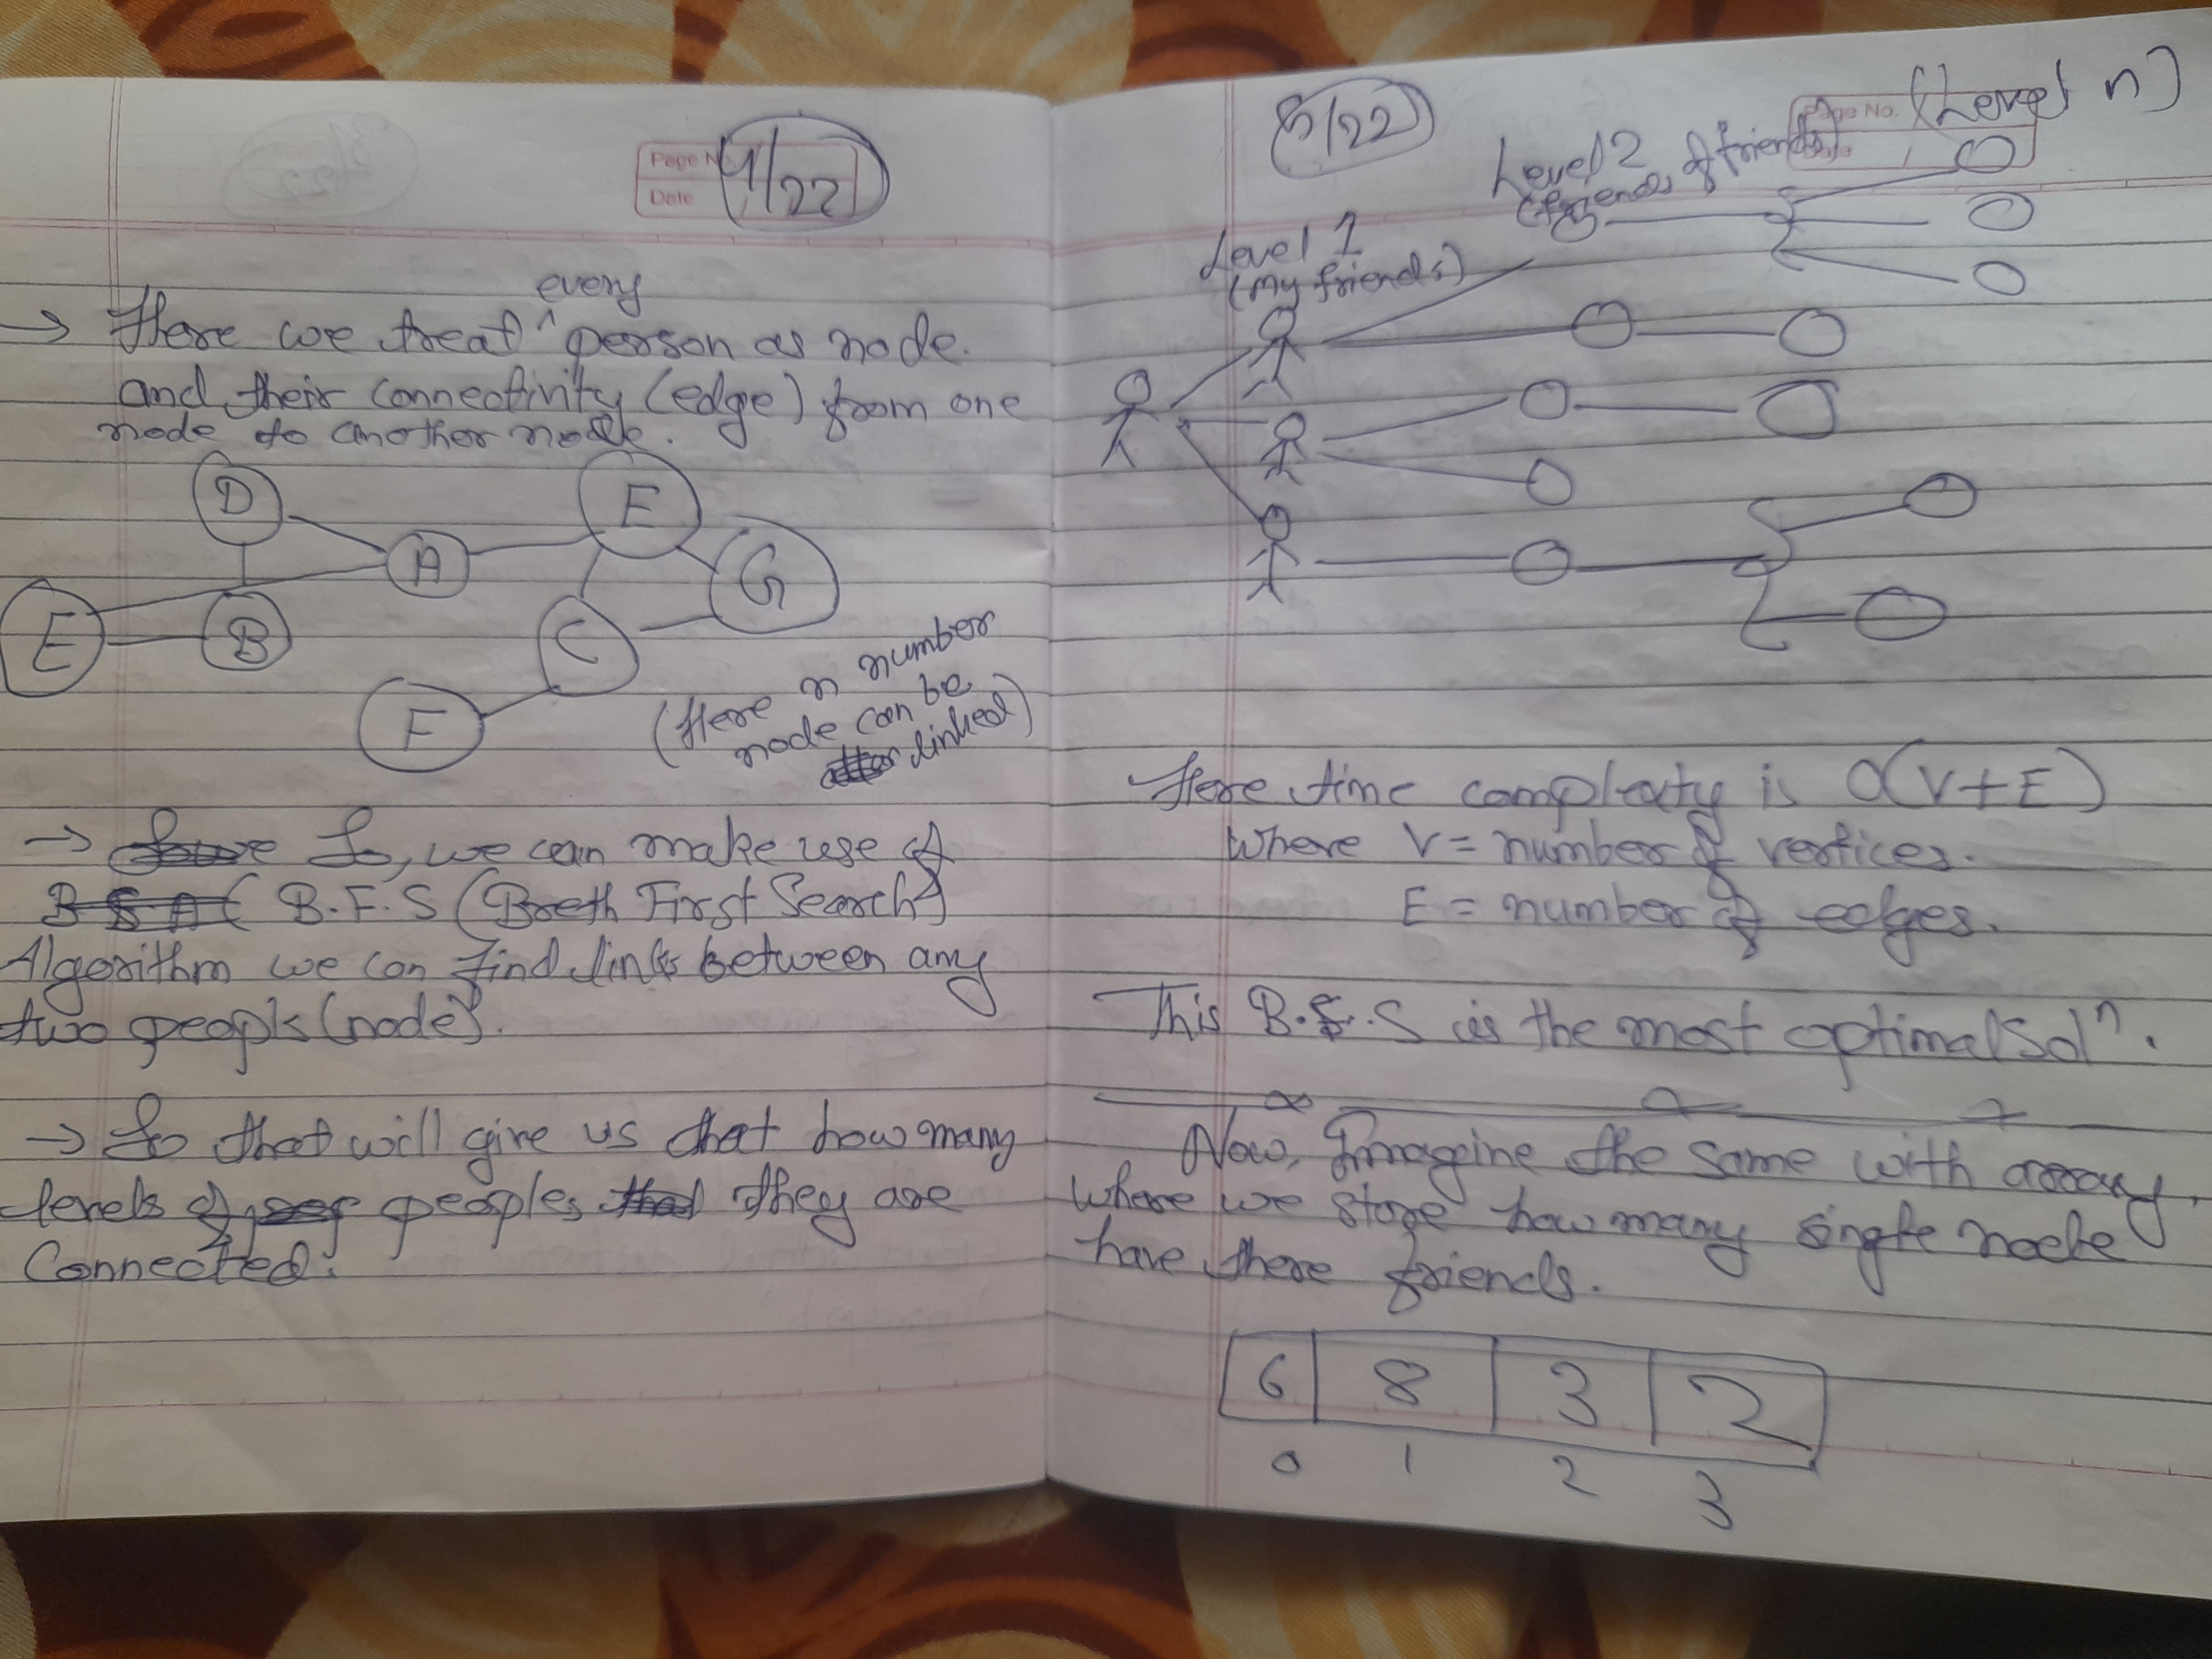 Page No.
Date
4/22
every
→ Here we treat person as node.
and their connectivity (edge) from one
node to another node.
D
E
A
G
E
B
C
F
(Here n number
node can be
linked)
→ So, we can make use of
B.F.S (Breth First Search)
Algorithm we can find links between any
two people (node).
→ So that will give us that how many
levels of peoples they are
connected.
5/22
Page No.
Date
(Level n)
Level 1
(my friends)
Level 2
(friends of friends)
Here time complexity is O(V+E)
where V = number of vertices.
E = number of edges.
This B.F.S is the most optimal soln.
Now, Imagine the same with array,
where we store how many single node
have there friends.
6 8 3 2
0 1 2 3